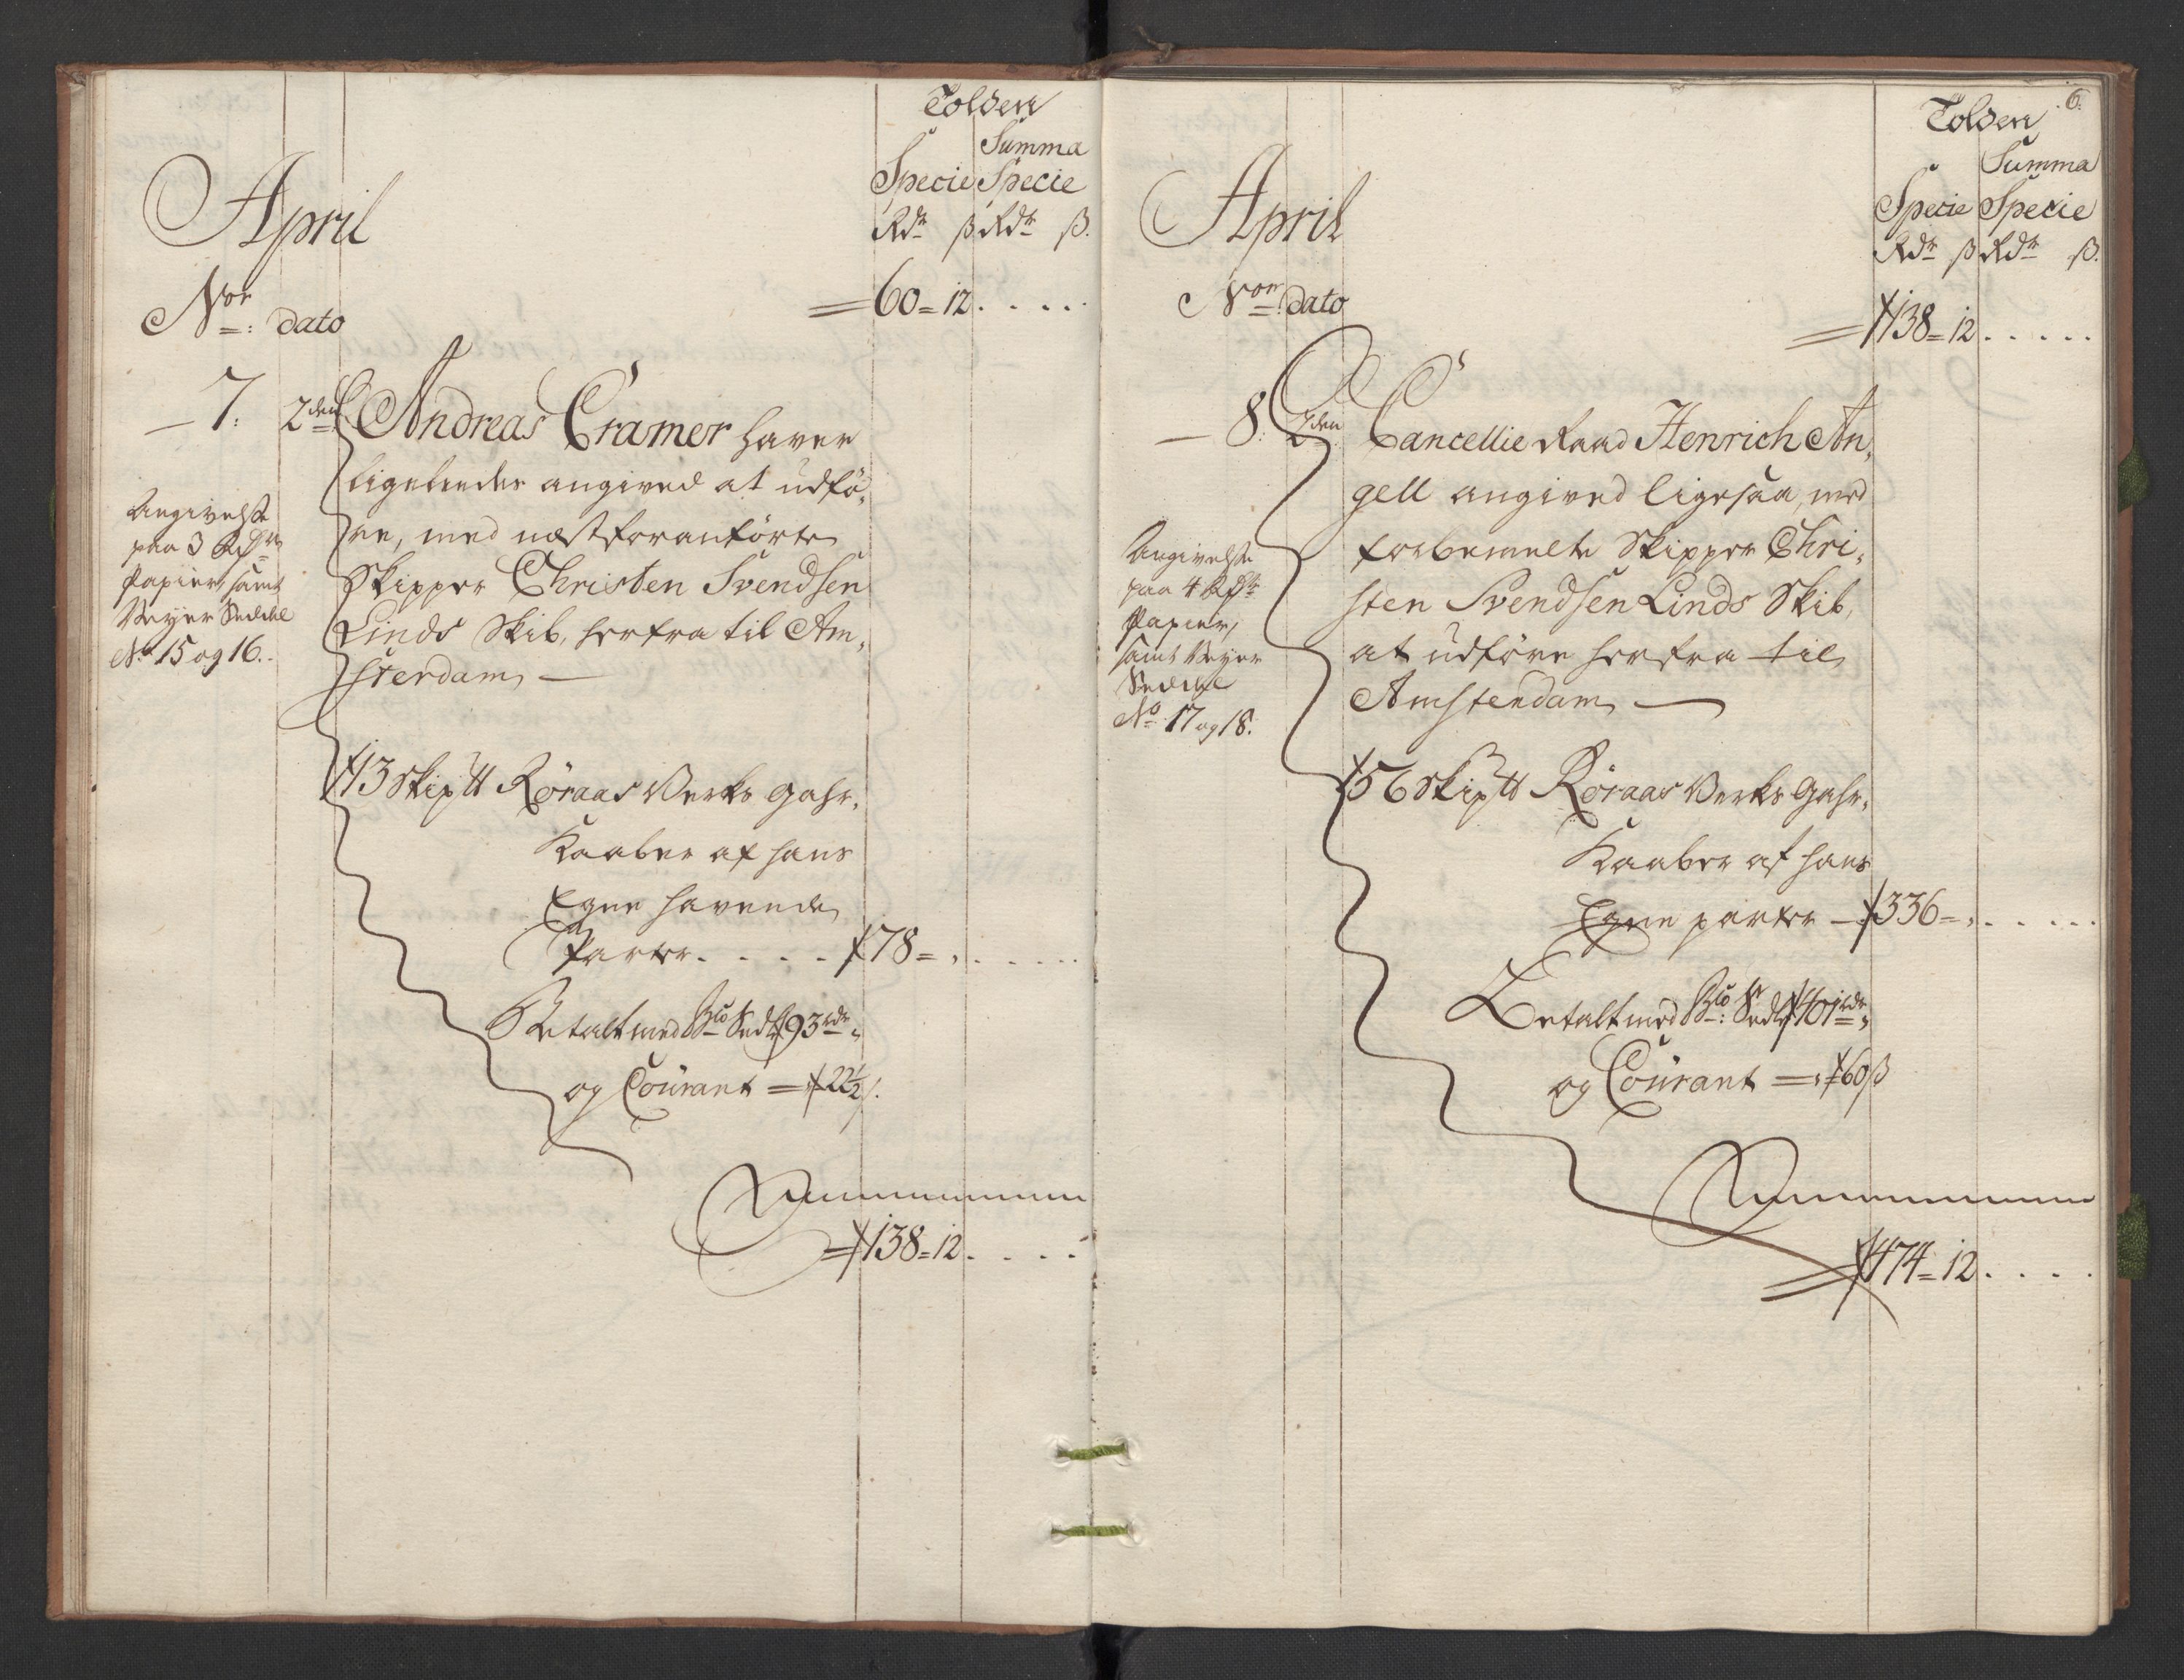 Tolden
Summa
Specie Specie
Rdr ß Rdr ß.
April
Nor dato
= 60 = 12 . . . . .
7. 2den Andreas Cramer haver
ligeledes angived at udfø-
re, med næstforanførte
Skipper Christen Svendsen
Linds Skib, herfra til Am-
sterdam —
Angivelse
paa 3 Rdr
Papiir, samt
Veyer Seddel
No 15 og 16.
13 Skip℔ Röraas Verks Gahr-
Kaaber af hans
Egne havende
Parter. . . . . 78 = „ . . . . .
Betalt med Bco Sedler 93 rdr
og Courant = 22½ ß.
= 138 = 12 . . . .
6.
Tolden
Summa
Specie Specie
Rdr ß Rdr ß.
April
Nor dato
= 138 = 12 . . . . .
8. 2den Cancellie Raad Henrich An-
gell angived ligesaa, med
forbemelte Skipper Chri-
sten Svendsen Linds Skib,
at udføre herfra til
Amsterdam —
Angivelse
paa 4 Rdr
Papiir,
samt Veyer
Seddel
No 17 og 18.
56 Skip℔ Röraas Verks Gahr-
Kaaber af hans
Egne parter — 336 = „ . . . . .
Betalt med Bco Sedler 401 rdr
og Courant = 60 ß
= 474 = 12 . . . .